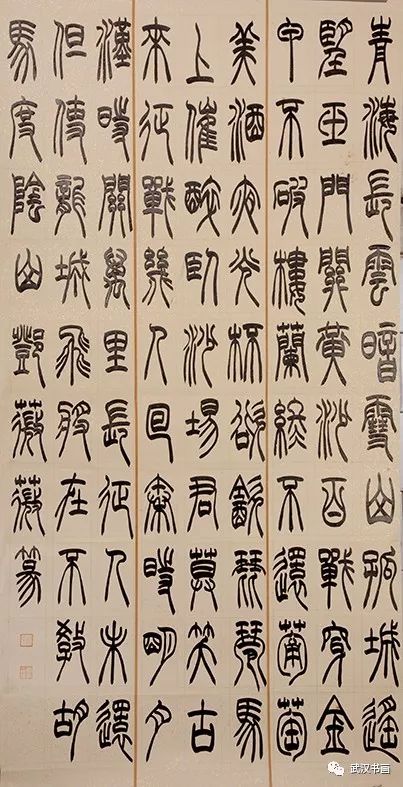 青海長雲暗雪山孤城遙
望玉門關黃沙百戰穿金
甲不破樓蘭終不還葡萄
美酒夜光杯欲飲琵琶馬
上催醉臥沙場君莫笑古
來征戰幾人回秦時明月
漢時關萬里長征人未還
但使龍城飛將在不教胡
馬度陰山鄧薇薇篆
武汉书画